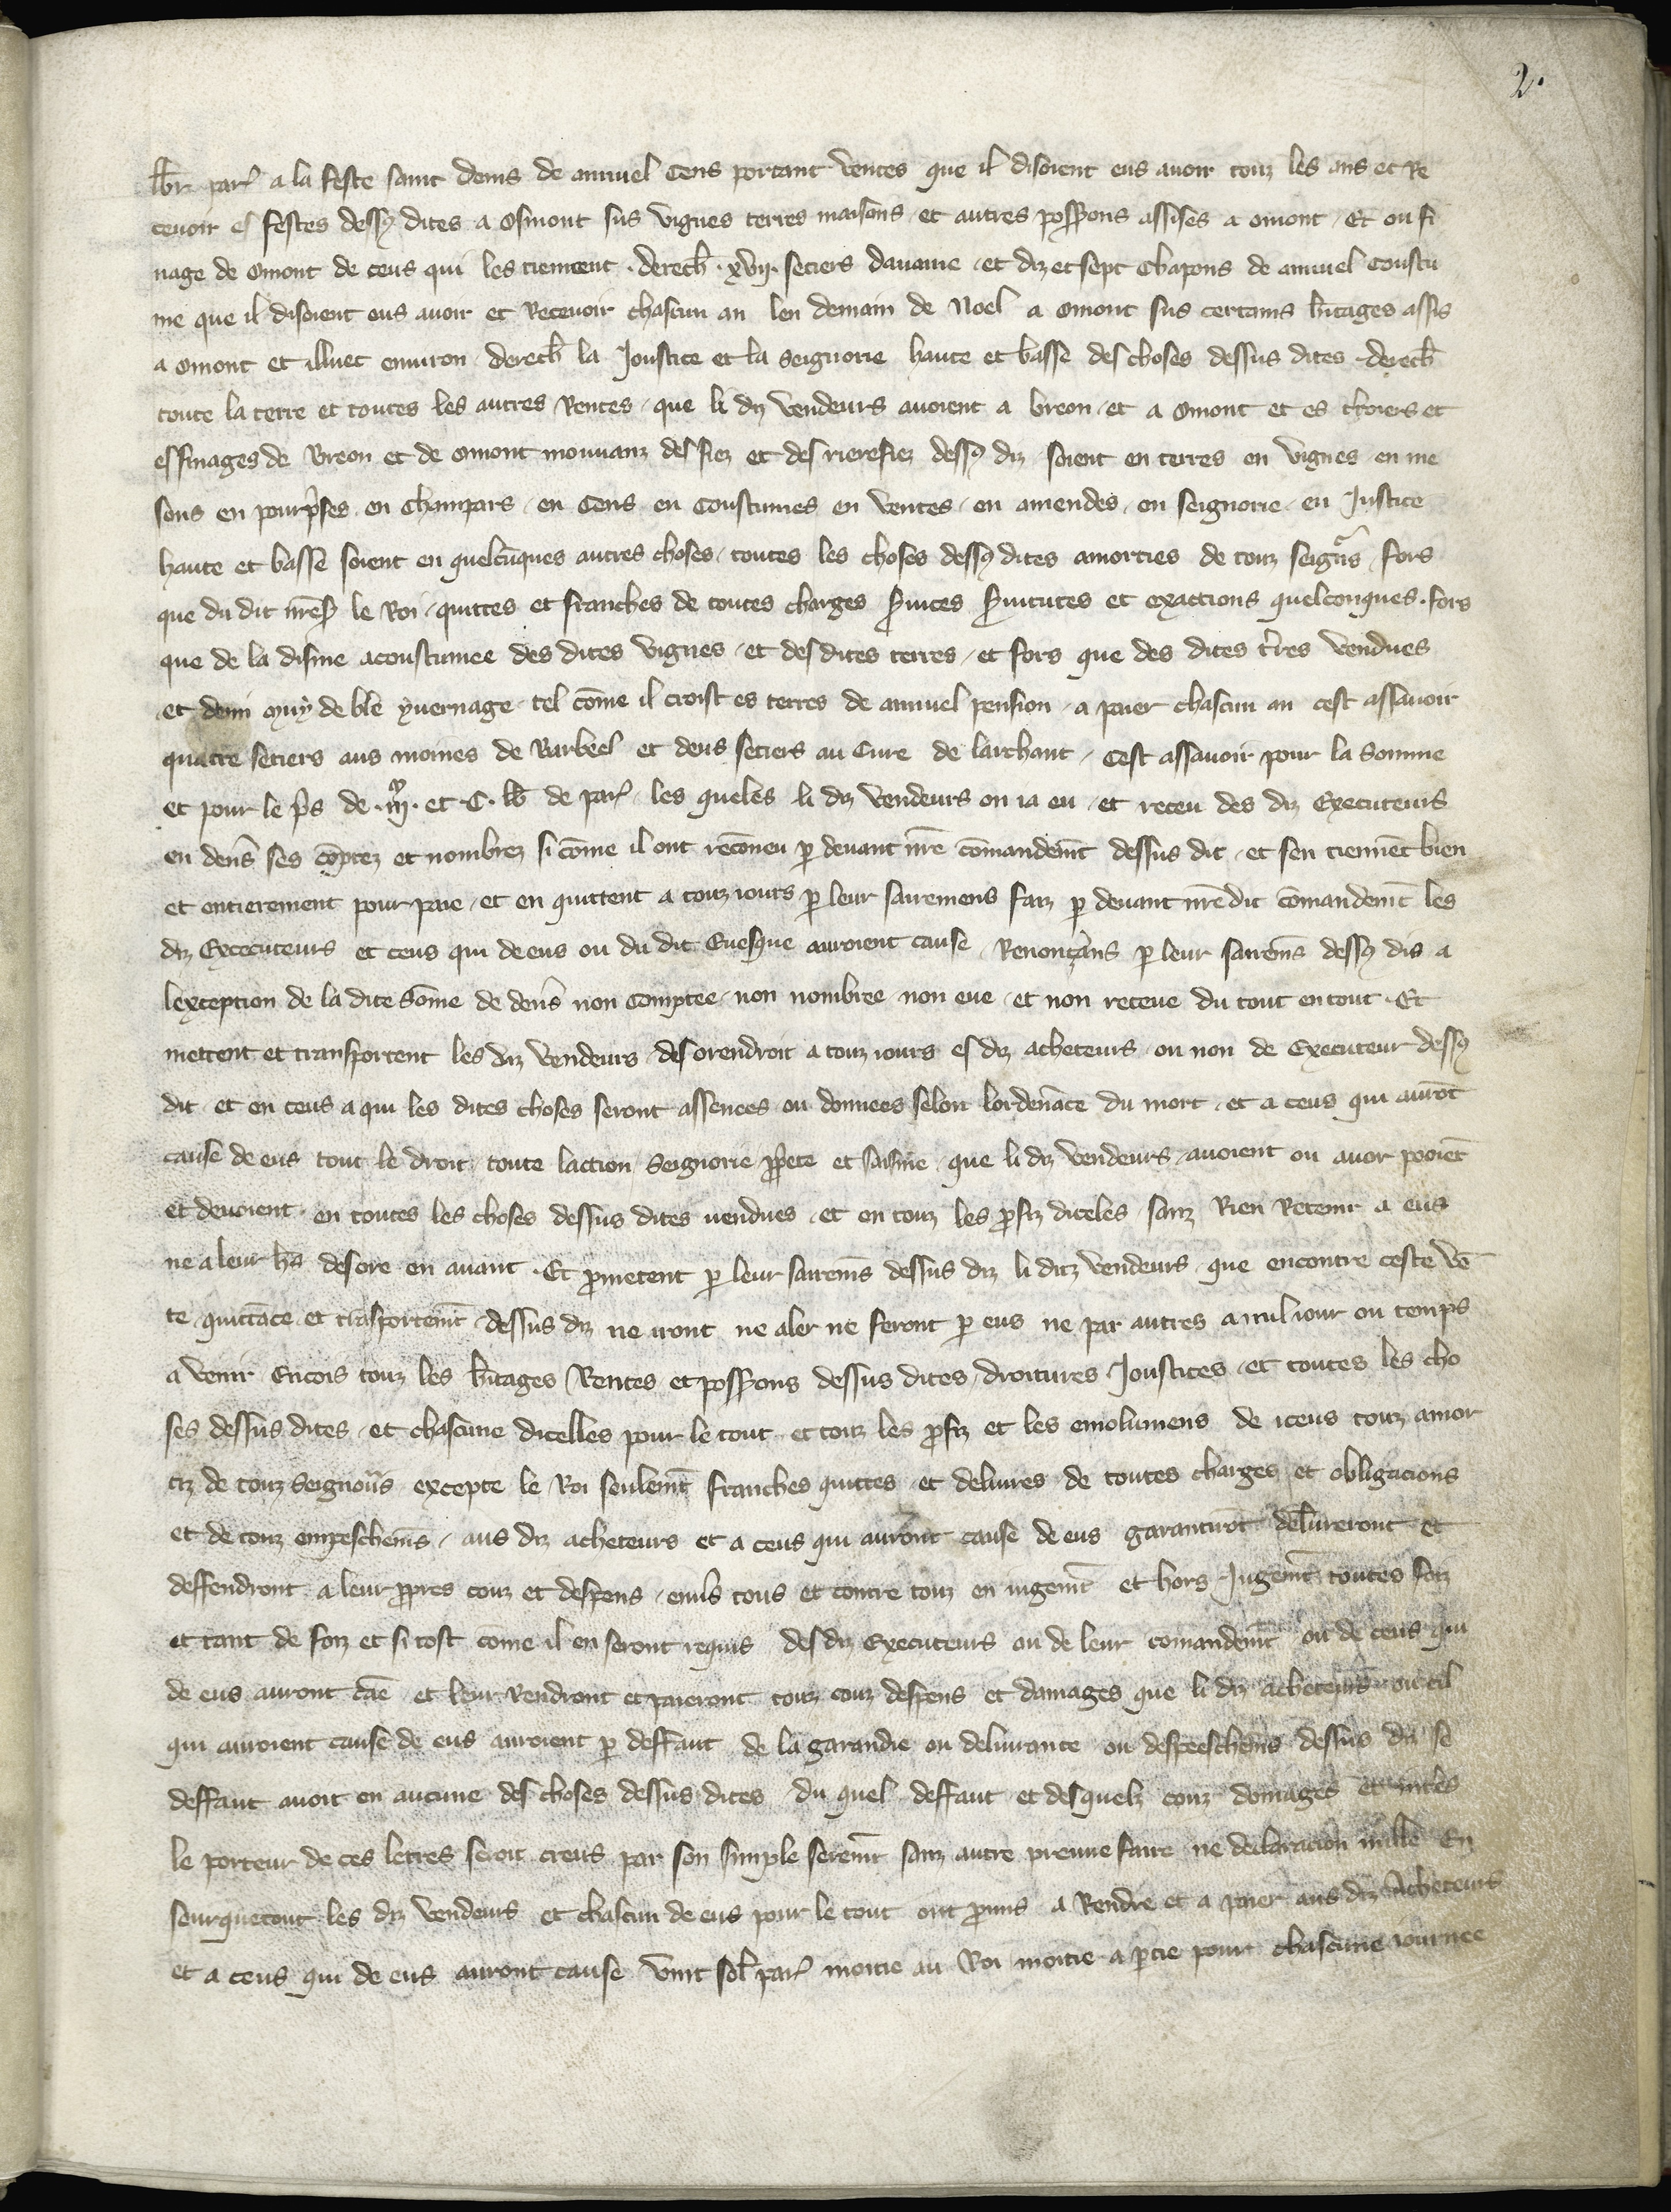 2.
lb̃r par̃ a la feste saint denis de annuel Cens portant ventes que il disoient eus auoir touz les ans et Re
ceuoir es festes dessꝰ dites a Osmont sus vignes terres maisons et autres poss̃ions assises a omont Et ou fi
nage de Omont de ceus qui les tiennent . derech̃ . xvij. setiers dauaine et diz et sept Chapons de annuel Coustu
me que il disoient eus auoir et Receuoir chascun an len demain de Noel a omont sus certains h̃itages assis
a omont et illuec enuiron derech̃ la Joustice et la seignorie haute et basse des choses dessus dites derech̃
toute la terre et toutes les autres Rentes que li diz vendeurs auoient a breon et a Omont et es t̃roiers et
es finages de Breon et de omont mouuanz des fiez et des rierefiez dessꝰ diz soient en terres en vignes en me
sons en pourp̃ses en Champars en Cens en Coustumes en ventes en amendes en seignorie en Justice
haute et basse soient en quelcũques autres choses toutes les choses dessꝰ dites amorties de touz seign̾rs fors
que du dit nr̃eş̃ le Roi quittes et franches de toutes charges s̃uices s̃uitutes et exactions quelconques . fors
que de la disme acoustumee des dites vignes et des dites terres et fors que des dites t̃res vendues
et demi muy de ble yuernage tel cõme il croist es terres de annuel pension a paier chascun an cest assauoir
quatre setiers aus moines de Barbeel et deus setiers au Cure de larchant Cest assauoir pour la Somme
et pour le p̃s de .iijᵐ. et .C. lb̃ de par̃ les queles li diz vendeurs on ia eu et receu des diz Executeurs
en den̾s ses cõptez et nombrez si cõme il ont recõneu p̱ deuant nr̃e cõmandem̃t dessus dit et sen tiennẽt bien
et entierement pour paie et en quittent a touz iours p̱ leur sairemens faiz p̱ deuant nr̃e dit cõmandem̃t les
diz Executeurs et ceus qui de eus ou du dit Euesque auroient cause Renonçans p̱ leur sairem̃s dessꝰ dis a
lexception de la dite Sõme de den̾s non Comptee non nombree non eue et non receue du tout en tout . Et
mettent et transportent les diz vendeurs des orendroit a touz iours es diz acheteurs ou non de Executeur dessꝰ
dit et en ceus a qui les dites choses seront assenees ou donnees selon lordenãce du mort et a ceus qui aurõt
cause de eus tout le droit toute laction Seignorie pp̃ete et saisine que li diz vendeurs auoient ou auoir pooiẽt
et deuoient en toutes les choses dessus dites uendues et en touz les p̃fiz diceles sanz Rien Retenir a eus
ne a leur h̃s desore en auant . Et p̃metent p̱ leur sairem̃s dessus diz li diz vendeurs que encontre ceste vẽ
te quittãce et trãsportem̃t dessus diz ne iront ne aler ne feront p̱ eus ne par autres a nul iour ou temps
a venir Encois touz les h̃itages Rentes et poss̃ions dessus dites droitures Joustices et toutes les cho
ses dessus dites et chascune dicelles pour le tout et touz les p̃fiz et les emolumens de iceus touz amor
tiz de touz Seignou̾s excepte le Roi seulem̃t franches quittes et deliures de toutes charges et obligacions
et de touz empeschem̃s aus diz acheteurs et a ceus qui auront cause de eus garantirõt del̃iureront et
deffendront a leur pp̃res couz et despens enu̾s tous et contre touz en iugem̃t et hors Jugem̃t toutes foiz
et tant de foiz et si tost come il en seront requis des diz Executeurs ou de leur comandem̃t ou de ceus qui
de eus auront cãe et leur Rendront et paieront touz couz despens et damages que li diz acheteurs ou cil
qui auroient cause de eus auroient p̱ deffaut de la garandie ou deliurance ou despeeschem̃s dessus diz se
deffaut auoit en aucune des choses dessus dites du quel deffaut et des quelz couz domages et int̾es
le porteur de ces lettres seroit creus par son simple serem̃t sanz autre preuue faire ne declaracion nulle En
seurquetout les diz vendeurs et chascun de eus pour le tout ont p̃mis a Rendre et a paier aus diz Acheteurs
et a ceus qui de eus auront cause vint sol̃ par̃ moitie au Roi moitie a p̱tie pour chascune iournee